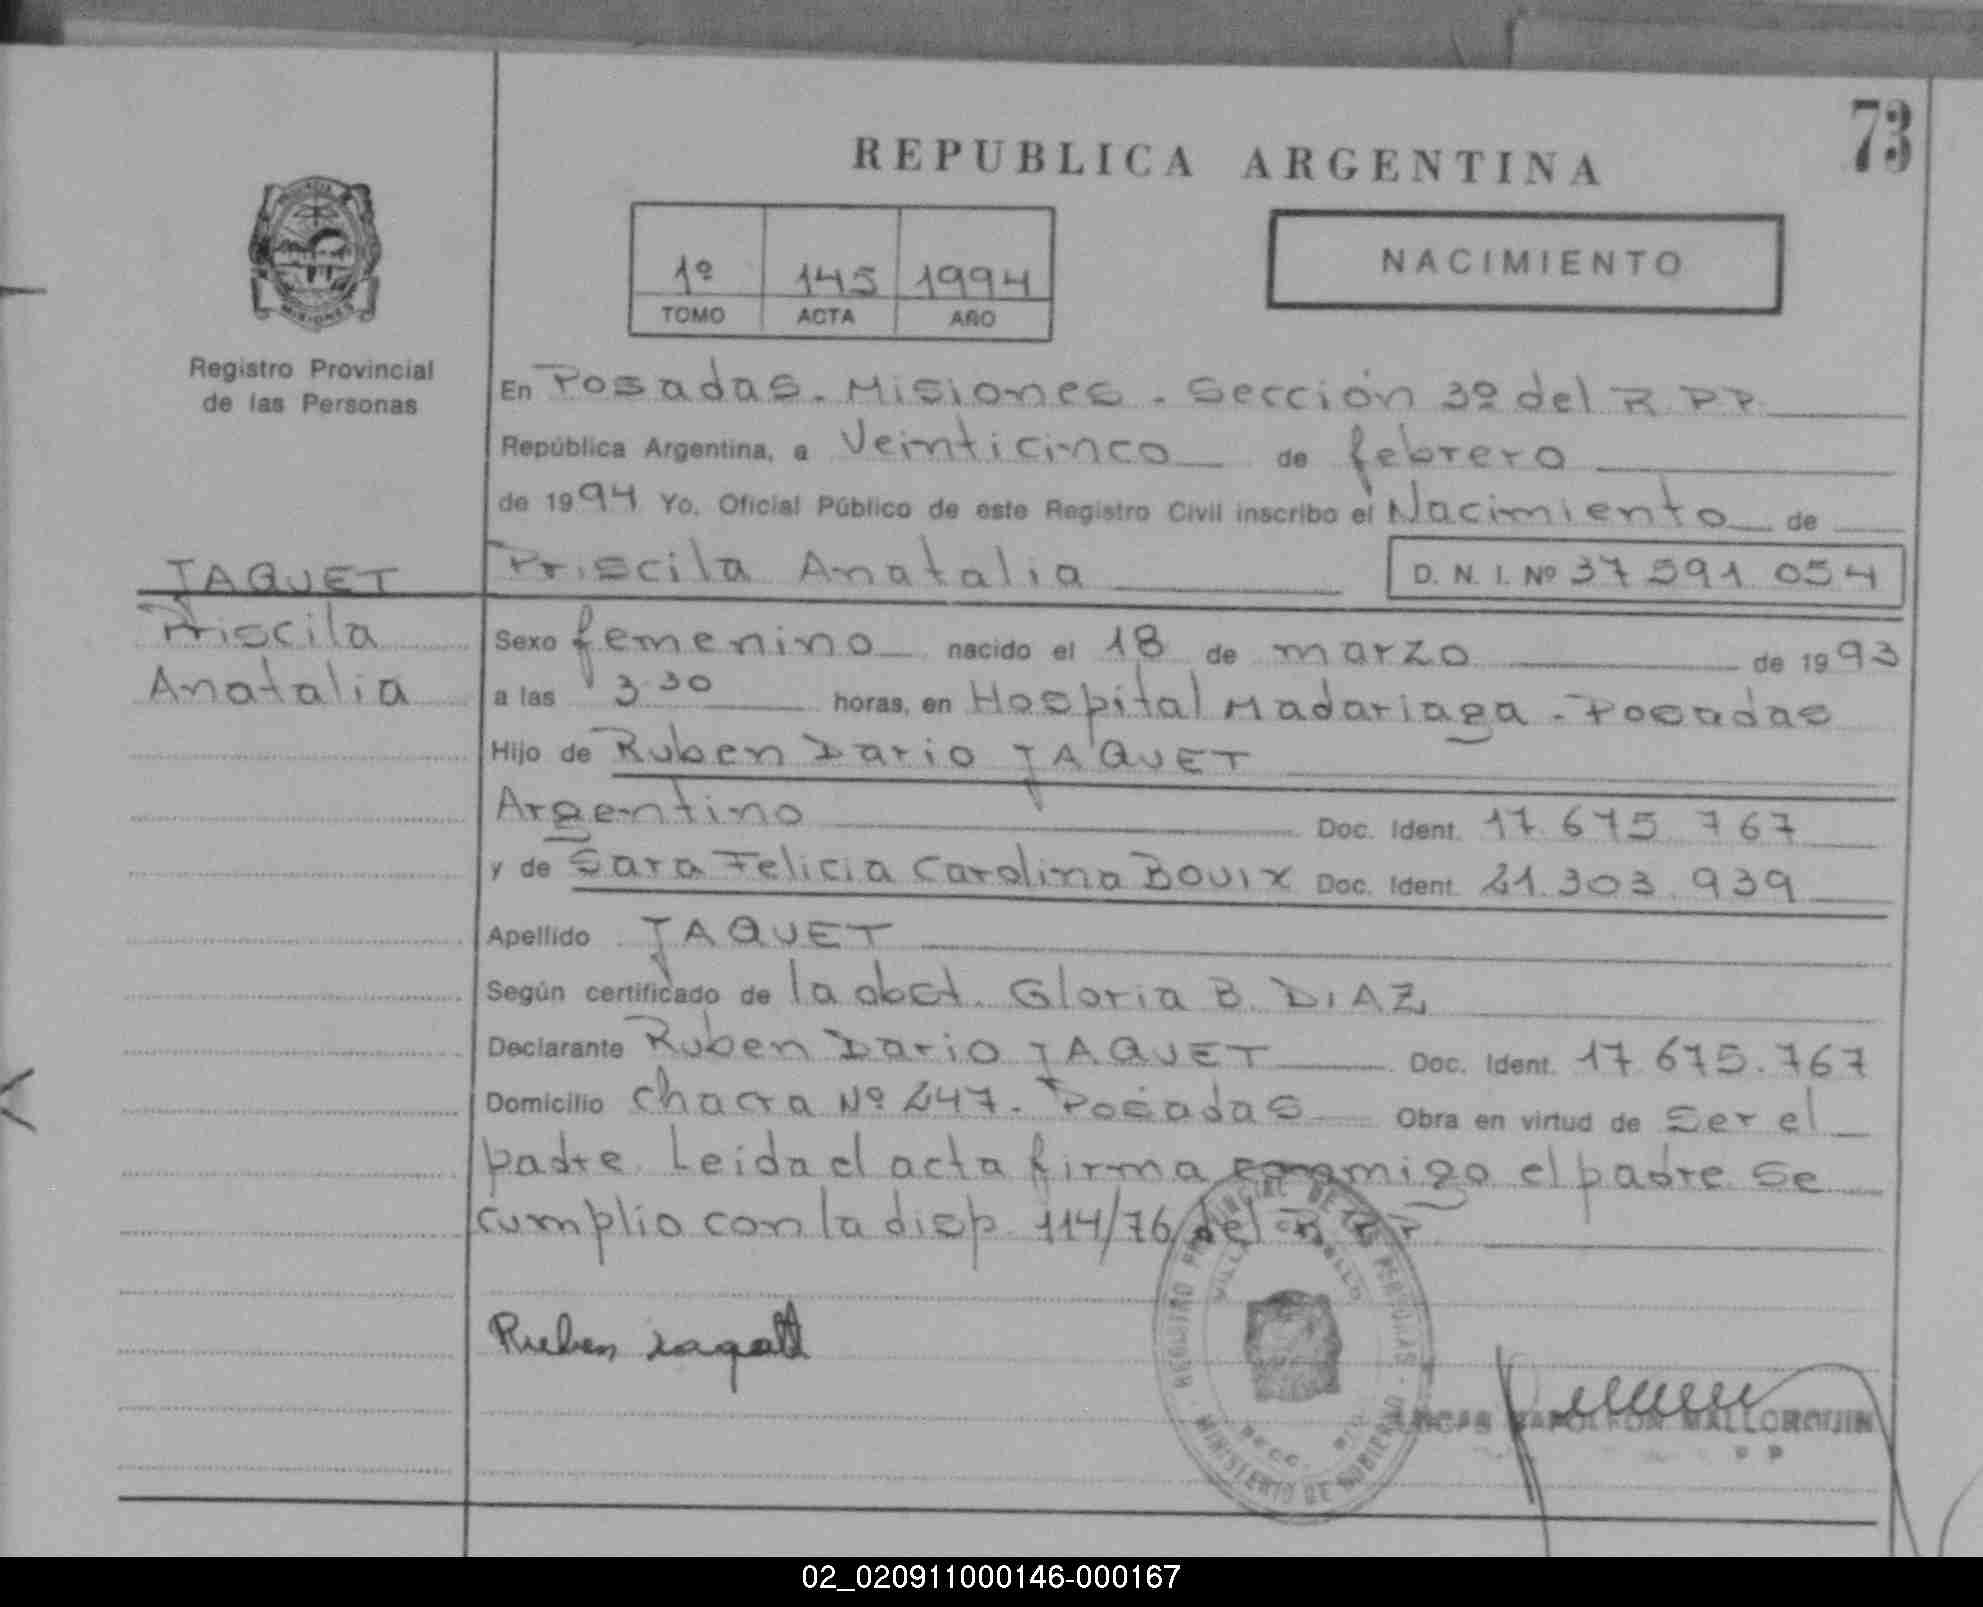 73
REPUBLICA ARGENTINA
1º 145 1994
TOMO ACTA AÑO
NACIMIENTO
MISIONES
Registro Provincial
de las Personas
En Posadas. Misiones. Sección 3º del R.P.P.
República Argentina, a Veinticinco de febrero
de 1994 Yo, Oficial Público de este Registro Civil inscribo el Nacimiento de
JAQUET
Priscila Anatalia D. N. I. Nº 37 591 054
Priscila
Sexo femenino nacido el 18 de marzo de 1993
Anatalia
a las 3 30 horas, en Hospital Madariaga - Posadas
Hijo de Ruben Dario JAQUET
Argentino Doc. Ident. 17.675 767
y de Sara Felicia Carolina BOUIX Doc. Ident. 21.303.939
Apellido JAQUET
Según certificado de la obst. Gloria B. DIAZ
Declarante Ruben Dario JAQUET Doc. Ident. 17 675.767
Domicilio Chacra Nº 247. Posadas Obra en virtud de ser el
padre. Leida el acta firma conmigo el padre. Se
cumplio con la disp. 114/76 del R.P.P.
REGISTRO PROVINCIAL DE LAS PERSONAS
MINISTERIO DE GOBIERNO
VILLA
Ruben
NAPOLEON MALLORQUIN
02_020911000146-000167